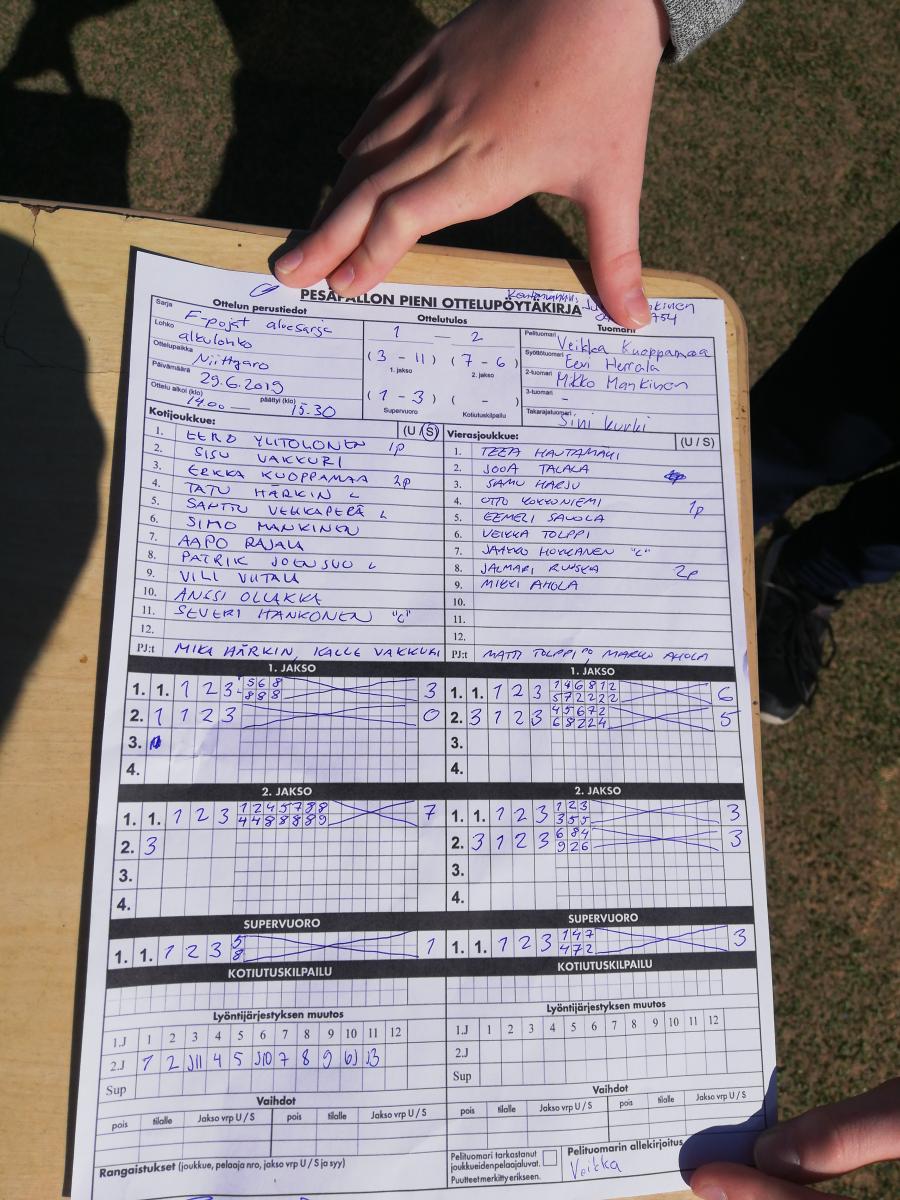 PESÄPALLON PIENI OTTELUPÖYTÄKIRJA
Ottelun perustiedot
Sarja F-pojat aluesarja
Lohko alkulohko
Ottelupaikka Niittyaro
Päivämäärä 29.6.2019
Ottelu alkoi (klo) 14.00 — päättyi (klo) 15.30
Ottelutulos
1 — 2
(3 - 11) (7 - 6)
1. jakso 2. jakso
(1 - 3) ( - )
Supervuoro Kotiutuskilpailu
Tuomarit
Pelituomari Veikka Kuoppamaa
Syöttötuomari Eevi Herrala
2-tuomari Mikko Mankinen
3-tuomari -
Takarajatuomari Sini Kurki
Kotijoukkue: (U / S)
1. EERO YLITOLONEN 1p
2. SISU VAKKURI
3. ERKKA KUOPPAMAA 2p
4. TATU HÄRKIN L
5. SANTTU VEHKAPERÄ L
6. SIMO MANKINEN
7. AAPO RAJALA
8. PATRIK JOENSUU L
9. VILI VIITALA
10. ANSSI OLLAKKA
11. SEVERI HANKONEN "C"
12.
PJ:t MIKA HÄRKIN, KALLE VAKKURI
Vierasjoukkue: (U / S)
1. TEEA HAUTAMAKI
2. JOOA TALALA
3. SAMU HARJU
4. OTTO YOKKONIEMI 1p
5. EEMELI SAVOLA
6. VEIKKA TOLPPI
7. JAAKKO HOKKANEN "C"
8. JALMARI RUUSKA 2p
9. MIKKI AHOLA
10.
11.
12.
PJ:t MATTI TOLPPI, MARKO AHOLA
1. JAKSO
1. 1. 1 2 3 5 6 8 3
8 8 8
2. 1 1 2 3 0
3.
4.
1. JAKSO
1. 1. 1 2 3 1 4 6 8 1 2 6
5 7 2 2 2 2
2. 3 1 2 3 4 5 6 7 2 5
6 8 2 2 4
3.
4.
2. JAKSO
1. 1. 1 2 3 1 2 4 5 7 8 8 7
4 4 8 8 8 8 9
2. 3
3.
4.
2. JAKSO
1. 1. 1 2 3 1 2 3 3
3 5 5
2. 3 1 2 3 6 8 4 3
9 2 6
3.
4.
SUPERVUORO
1. 1. 1 2 3 5 1
8
SUPERVUORO
1. 1. 1 2 3 1 4 7 3
4 7 2
KOTIUTUSKILPAILU
KOTIUTUSKILPAILU
Lyöntijärjestyksen muutos
1.J 1 2 3 4 5 6 7 8 9 10 11 12
2.J 1 2 J11 4 5 J10 7 8 9 6J J3
Sup
Lyöntijärjestyksen muutos
1.J 1 2 3 4 5 6 7 8 9 10 11 12
2.J
Sup
Vaihdot
pois tilalle Jakso vrp U / S pois tilalle Jakso vrp U / S
Vaihdot
pois tilalle Jakso vrp U / S pois tilalle Jakso vrp U / S
Rangaistukset (joukkue, pelaaja nro, jakso vrp U / S ja syy)
Pelituomari tarkastanut
joukkueidenpelaajaluvat.
Puutteet merkitty erikseen.
Pelituomarin allekirjoitus
Veikka